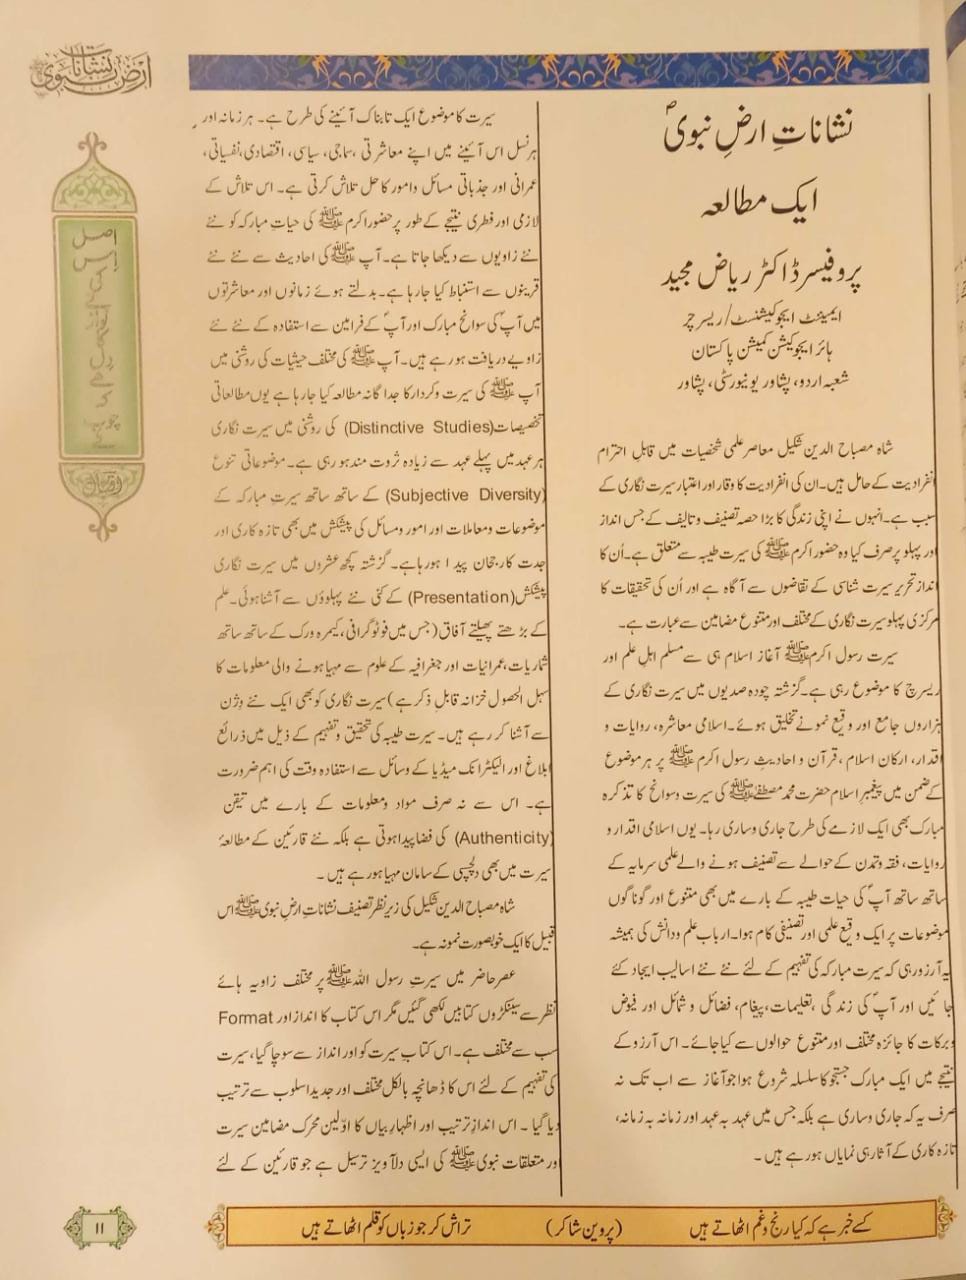 نشاناتِ ارضِ نبویؐ
ایک مطالعہ
پروفیسر ڈاکٹر ریاض مجید
ایمینٹ ایجوکیشنسٹ/ریسرچر
ہائر ایجوکیشن کمیشن پاکستان
شعبہ اردو، پشاور یونیورسٹی، پشاور
شاہ مصباح الدین شکیل معاصر علمی شخصیات میں قابلِ احترام
انفرادیت کے حامل ہیں۔ ان کی انفرادیت کا وقار اور اعتبار سیرت نگاری کے
سبب ہے۔ انہوں نے اپنی زندگی کا بڑا حصہ تصنیف و تالیف کے جس انداز
اور پہلو پر صرف کیا وہ حضور اکرم ﷺ کی سیرت طیبہ سے متعلق ہے۔ اُن کا
انداز تحریر سیرت شناسی کے تقاضوں سے آگاہ ہے اور اُن کی تحقیقات کا
مرکزی پہلو سیرت نگاری کے مختلف اور متنوع مضامین سے عبارت ہے۔
سیرت رسول اکرم ﷺ آغاز اسلام ہی سے مسلم اہلِ علم اور
ریسرچ کا موضوع رہی ہے۔ گزشتہ چودہ صدیوں میں سیرت نگاری کے
ہزاروں جامع اور وقیع نمونے تخلیق ہوئے۔ اسلامی معاشرہ، روایات و
اقدار، ارکان اسلام، قرآن و احادیثِ رسول اکرم ﷺ پر ہر موضوع
کے ضمن میں پیغمبرِ اسلام حضرت محمد مصطفیٰ ﷺ کی سیرت و سوانح کا تذکرہ
مبارک بھی ایک لازمے کی طرح جاری و ساری رہا۔ یوں اسلامی اقدار و
روایات، فقہ و تمدن کے حوالے سے تصنیف ہونے والے علمی سرمایہ کے
ساتھ ساتھ آپؐ کی حیات طیبہ کے بارے میں بھی متنوع اور گوناگوں
موضوعات پر ایک وقیع علمی اور تصنیفی کام ہوا۔ ارباب علم و دانش کی ہمیشہ
یہ آرزو رہی کہ سیرت مبارکہ کی تفہیم کے لئے نئے نئے اسالیب ایجاد کئے
جائیں اور آپؐ کی زندگی، تعلیمات، پیغام، فضائل و شمائل اور فیوض
و برکات کا جائزہ مختلف اور متنوع حوالوں سے کیا جائے۔ اس آرزو کے
نتیجے میں ایک مبارک جستجو کا سلسلہ شروع ہوا جو آغاز سے اب تک نہ
صرف یہ کہ جاری و ساری ہے بلکہ جس میں عہد بہ عہد اور زمانہ بہ زمانہ،
تازہ کاری کے آثار ہی نمایاں ہو رہے ہیں۔
سیرت کا موضوع ایک تابناک آئینے کی طرح ہے۔ ہر زمانہ اور
ہر نسل اس آئینے میں اپنے معاشرتی، سماجی، سیاسی، اقتصادی، نفسیاتی،
عمرانی اور جذباتی مسائل و امور کا حل تلاش کرتی ہے۔ اس تلاش کے
لازمی اور فطری نتیجے کے طور پر حضور اکرم ﷺ کی حیاتِ مبارکہ کو نئے
نئے زاویوں سے دیکھا جاتا ہے۔ آپ ﷺ کی احادیث سے نئے نئے
قرینوں سے استنباط کیا جا رہا ہے۔ بدلتے ہوئے زمانوں اور معاشرتوں
میں آپؐ کی سوانح مبارک اور آپؐ کے فرامین سے استفادہ کے نئے نئے
زاویے دریافت ہو رہے ہیں۔ آپ ﷺ کی مختلف حیثیات کی روشنی میں
آپ ﷺ کی سیرت و کردار کا جداگانہ مطالعہ کیا جا رہا ہے یوں مطالعاتی
تخصیصات (Distinctive Studies) کی روشنی میں سیرت نگاری
ہر عہد میں پہلے عہد سے زیادہ ثروت مند ہو رہی ہے۔ موضوعاتی تنوع
(Subjective Diversity) کے ساتھ ساتھ سیرتِ مبارکہ کے
موضوعات و معاملات اور امور و مسائل کی پیشکش میں بھی تازہ کاری اور
جدت کا رجحان پیدا ہو رہا ہے۔ گزشتہ کچھ عشروں میں سیرت نگاری
پیشکش (Presentation) کے کئی نئے پہلوؤں سے آشنا ہوئی۔ علم
کے بڑھتے پھیلتے آفاق (جس میں فوٹوگرافی، کیمرہ ورک کے ساتھ ساتھ
شماریات، عمرانیات اور جغرافیہ کے علوم سے مہیا ہونے والی معلومات کا
سہل الحصول خزانہ قابلِ ذکر ہے) سیرت نگاری کو بھی ایک نئے وژن
سے آشنا کر رہے ہیں۔ سیرت طیبہ کی تحقیق و تفہیم کے ذیل میں ذرائع
ابلاغ اور الیکٹرانک میڈیا کے وسائل سے استفادہ وقت کی اہم ضرورت
ہے۔ اس سے نہ صرف مواد و معلومات کے بارے میں تیقن
(Authenticity) کی فضا پیدا ہوتی ہے بلکہ نئے قارئین کے مطالعۂ
سیرت میں بھی دلچسپی کے سامان مہیا ہو رہے ہیں۔
شاہ مصباح الدین شکیل کی زیر نظر تصنیف نشانات ارضِ نبوی ﷺ اس
قبیل کا ایک خوبصورت نمونہ ہے۔
عصر حاضر میں سیرتِ رسول اللہ ﷺ پر مختلف زاویہ ہائے
نظر سے سینکڑوں کتابیں لکھی گئیں مگر اس کتاب کا انداز اور Format
سب سے مختلف ہے۔ اس کتابِ سیرت کو اور انداز سے سوچا گیا، سیرت
کی تفہیم کے لئے اس کا ڈھانچہ بالکل مختلف اور جدید اسلوب سے ترتیب
دیا گیا۔ اس اندازِ ترتیب اور اظہارِ بیاں کا اوّلین محرک مضامین سیرت
اور متعلقات نبوی ﷺ کی ایسی دلآویز ترسیل ہے جو قارئین کے لئے
نشانات ارضِ نبوی
اقبال
کسے خبر ہے کہ کیا رنج و غم اٹھاتے ہیں (پروین شاکر) تراش کر جو زباں کو قلم اٹھاتے ہیں
۱۱